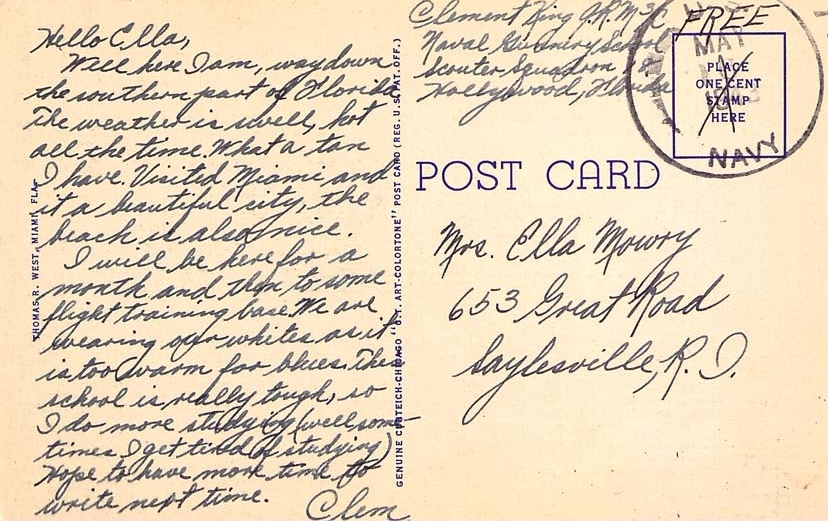 Hello Ella,
Well here I am, way down
the southern part of Florida
The weather is swell, hot
all the time. What a tan
I have. Visited Miami and
it a beautiful city, the
beach is also nice.
I will be here for a
month and then to some
flight training base. We are
wearing our whites as it
is too warm for blues. This
school is really tough, so
I do more studying (well some-
times I get tired of studying)
Hope to have more time to
write next time.
Clem
THOMAS R. WEST, MIAMI, FLA.
GENUINE CURTEICH-CHICAGO "C.T. ART-COLORTONE" POST CARD (REG. U.S. PAT. OFF.)
Clement King Jr. RM3/C
Naval Gunnery School
Scouter Squadron
Hollywood, Florida
FREE
PLACE
ONE CENT
STAMP
HERE
MAY
NAVY
POST CARD
Mrs. Ella Mowry
653 Great Road
Saylesville, R. I.